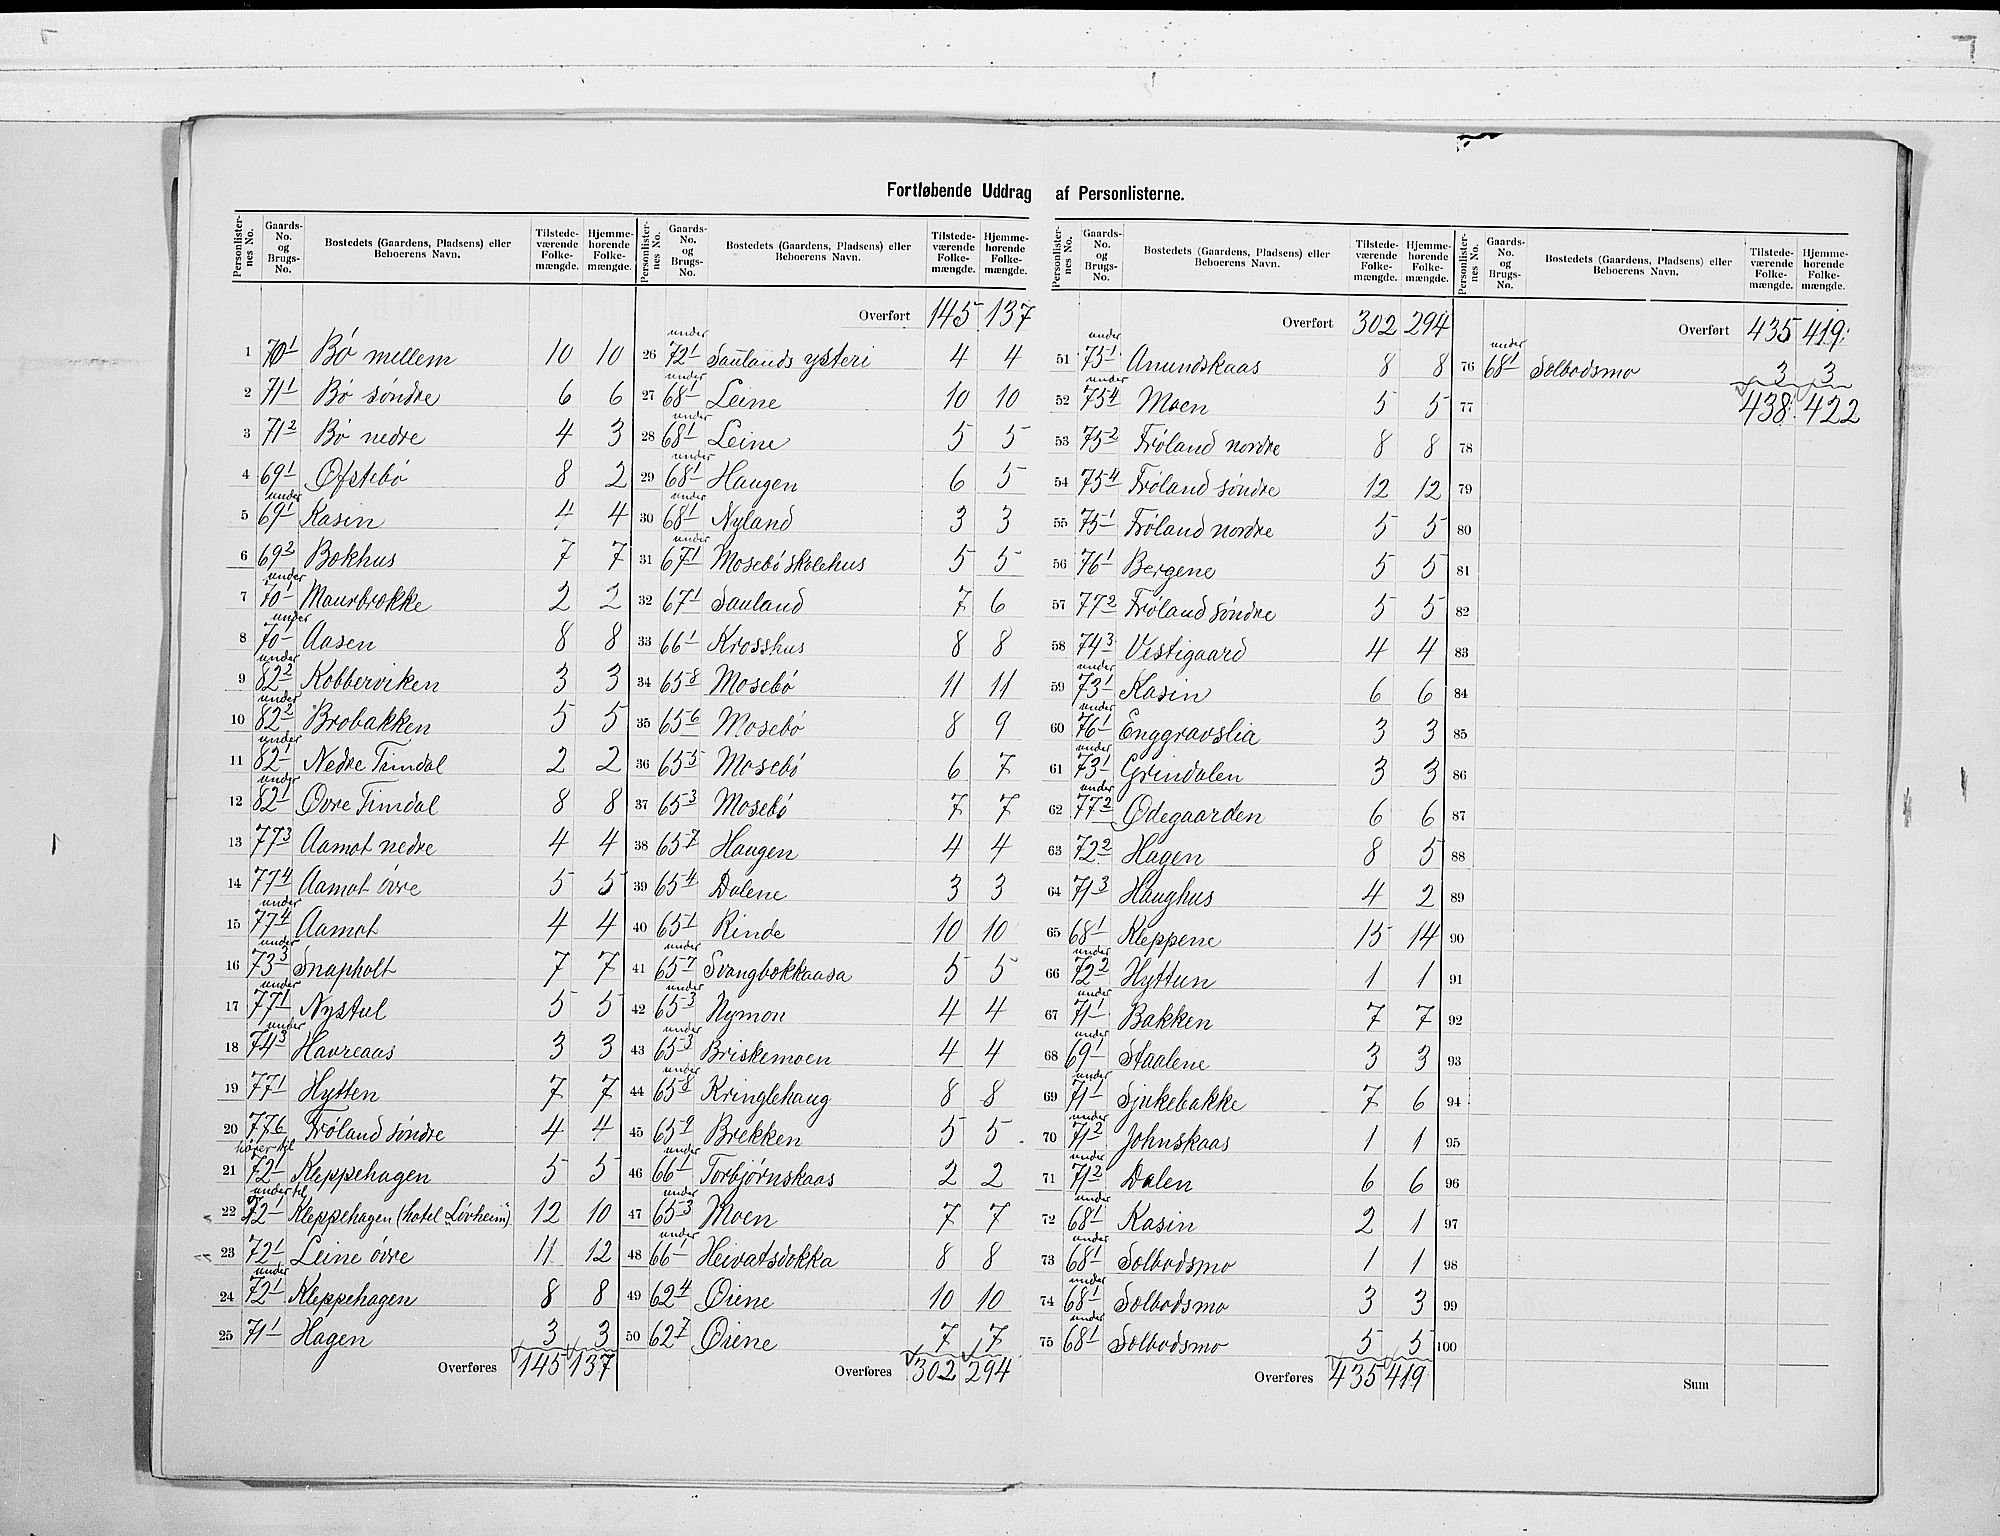 Fortløbende Uddrag af Personlisterne.
Personlister-nes No. Gaards-No. og Brugs-No. Bostedets (Gaardens, Pladsens) eller Beboerens Navn. Tilstede-værende Folke-mængde. Hjemme-hørende Folke-mængde.
1 70/1 Bø mellem 10 10
2 71/1 Bø søndre 6 6
3 71/2 Bø nedre 4 3
4 69/1 Øfstebø 8 2
5 under 69/1 Kasin 4 4
6 69/2 Bokhus 7 7
7 under 70/1 Maurbrokke 2 2
8 under 70/ Aasen 8 8
9 under 82/2 Kobberviken 3 3
10 under 82/2 Brobakken 5 5
11 under 82/1 Nedre Timdal 2 2
12 under 82/1 Øvre Timdal 8 8
13 77/3 Aamot nedre 4 4
14 77/4 Aamot øvre 5 5
15 under 77/4 Aamot 4 4
16 under 73/3 Snapholt 7 7
17 under 77/1 Nystul 5 5
18 under 74/3 Havreaas 3 3
19 77/1 Hytten 7 7
20 77/6 Frøland søndre 4 4
21 hører til 72/1 Kleppehagen 5 5
22 under til 72/1 Kleppehagen (hotel Løvheim) 12 10
23 72/1 Leine øvre 11 12
24 under 72/1 Kleppehagen 8 8
25 71/1 Hagen 3 3
Overføres 145 137
Personlister-nes No. Gaards-No. og Brugs-No. Bostedets (Gaardens, Pladsens) eller Beboerens Navn. Tilstede-værende Folke-mængde. Hjemme-hørende Folke-mængde.
Overført 145 137
26 under 72/1 Saulands ysteri 4 4
27 under 68/1 Leine 10 10
28 under 68/1 Leine 5 5
29 under 68/1 Haugen 6 5
30 under 68/1 Nyland 3 3
31 under 67/1 Mosebø skolehus 5 5
32 67/1 Sauland 7 6
33 66/1 Krosshus 8 8
34 65/8 Mosebø 11 11
35 65/6 Mosebø 8 9
36 65/5 Mosebø 6 7
37 65/3 Mosebø 7 7
38 65/7 Haugen 4 4
39 65/4 Dalene 3 3
40 65/1 Rinde 10 10
41 under 65/7 Svangbokkaasa 5 5
42 under 65/3 Nymon 4 4
43 under 65/3 Briskemoen 4 4
44 under 65/8 Kringlehaug 8 8
45 65/9 Brekken 5 5
46 under 66/1 Torbjørnskaas 2 2
47 under 65/3 Moen 7 7
48 under 66/1 Heivatsdokka 8 8
49 62/4 Øiene 10 10
50 62/7 Øiene 7 7
Overføres 302 294
Personlister-nes No. Gaards-No. og Brugs-No. Bostedets (Gaardens, Pladsens) eller Beboerens Navn. Tilstede-værende Folke-mængde. Hjemme-hørende Folke-mængde.
Overført 302 294
51 under 75/1 Anundskaas 8 8
52 under 75/4 Moen 5 5
53 75/2 Frøland nordre 8 8
54 75/4 Frøland søndre 12 12
55 75/1 Frøland nordre 5 5
56 76/1 Bergene 5 5
57 77/2 Frøland søndre 5 5
58 74/3 Vestigaard 4 4
59 under 73/1 Kasin 6 6
60 under 76/1 Enggravslia 3 3
61 under 73/1 Grindalen 3 3
62 under 77/2 Ødegaarden 6 6
63 72/2 Hagen 8 5
64 71/3 Haughus 4 2
65 68/1 Kleppene 15 14
66 under 72/2 Hyttun 1 1
67 under 71/1 Bakken 7 7
68 under 69/1 Staalene 3 3
69 under 71/1 Sjukebakke 7 6
70 under 71/2 Johnskaas 1 1
71 under 71/2 Dalen 6 6
72 under 68/1 Kasin 2 1
73 under 68/1 Solbodsmo 1 1
74 under 68/1 Solbodsmo 3 3
75 under 68/1 Solbodsmo 5 5
Overføres 435 419
Personlister-nes No. Gaards-No. og Brugs-No. Bostedets (Gaardens, Pladsens) eller Beboerens Navn. Tilstede-værende Folke-mængde. Hjemme-hørende Folke-mængde.
Overført 435 419
76 under 68/1 Solbodsmo 3 3
77 438 422
78
79
80
81
82
83
84
85
86
87
88
89
90
91
92
93
94
95
96
97
98
99
100
Sum